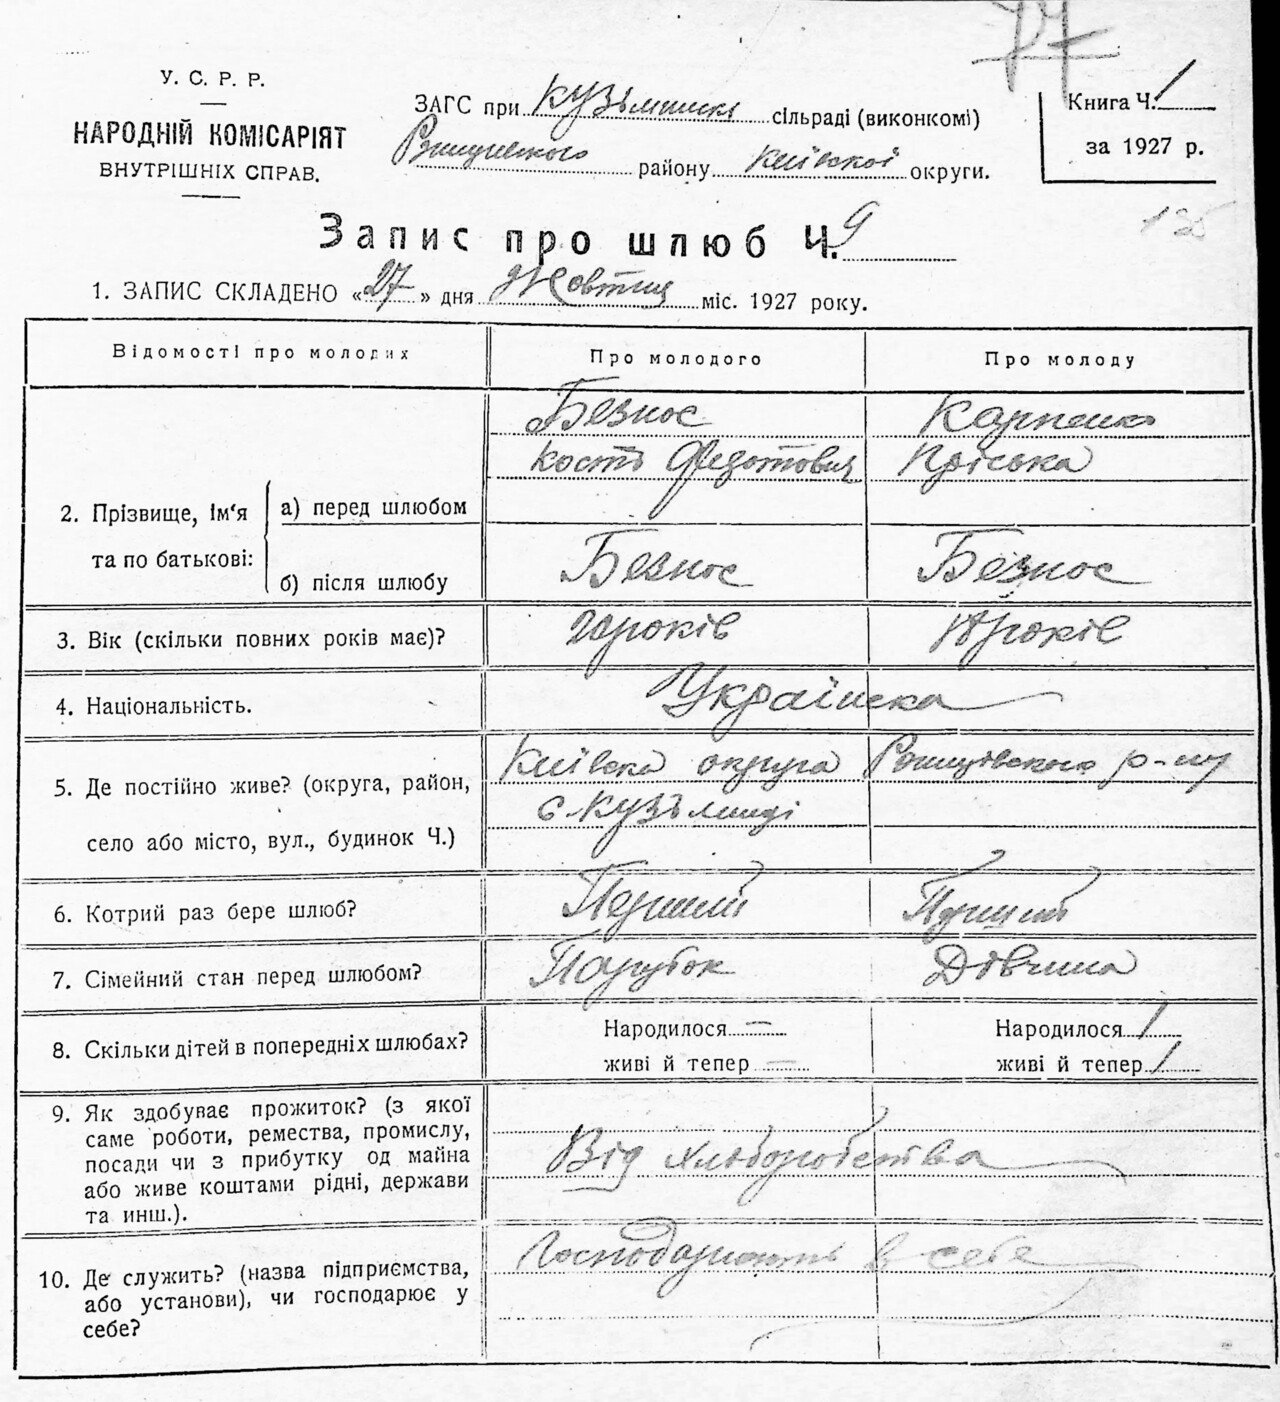 У. С. Р. Р.
НАРОДНІЙ КОМІСАРІЯТ
ВНУТРІШНІХ СПРАВ.
ЗАГС при сільраді (виконкомі)
району Київської округи.
Книга Ч. 1
за 1927 р.
Запис про шлюб Ч. 9
1. ЗАПИС СКЛАДЕНО «27» дня Жовтня міс. 1927 року.
Відомості про молодих
Про молодого
Про молоду
2. Прізвище, ім'я та по батькові:
а) перед шлюбом
Безнос
Кость Федотович
Карпенко
Пріська
б) після шлюбу
Безнос
Безнос
3. Вік (скільки повних років має)?
років
років
4. Національність.
Українска
5. Де постійно живе? (округа, район,
село або місто, вул., будинок Ч.)
Київска округа р-ну
с.
6. Котрий раз бере шлюб?
Перший
Перший
7. Сімейний стан перед шлюбом?
Парубок
Дівчина
8. Скільки дітей в попередніх шлюбах?
Народилося —
живі й тепер —
Народилося 1
живі й тепер 1
9. Як здобуває прожиток? (з якої
саме роботи, ремества, промислу,
посади чи з прибутку од майна
або живе коштами рідні, держави
та инш.).
Від хліборобства
10. Де служить? (назва підприємства,
або установи), чи господарює у
себе?
Господарюють в себе